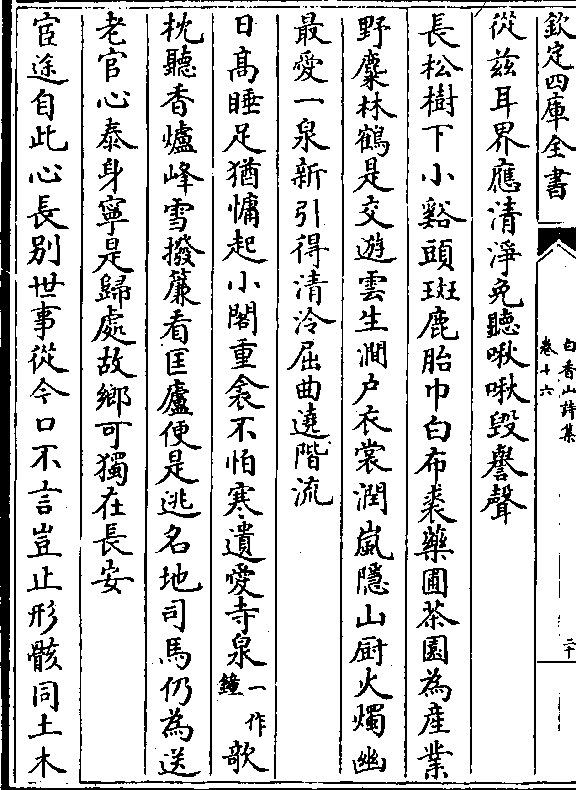 欽定四庫全書
白香山詩集
卷十六
二十
從兹耳界應清淨免聽啾啾毀譽聲
長松樹下小谿頭斑鹿胎巾白布裘藥圃茶園為產業
野麋林鶴是交遊雲生澗户衣裳潤嵐隱山厨火燭幽
最愛一泉新引得清泠屈曲遶階流
日髙睡足猶慵起小閣重衾不怕寒遺愛寺泉一作鐘欹
枕聽香爐峰雪撥簾看匡廬便是逃名地司馬仍為送
老官心泰身寧是歸處故鄉可獨在長安
宦途自此心長别世事從今口不言豈止形骸同土木